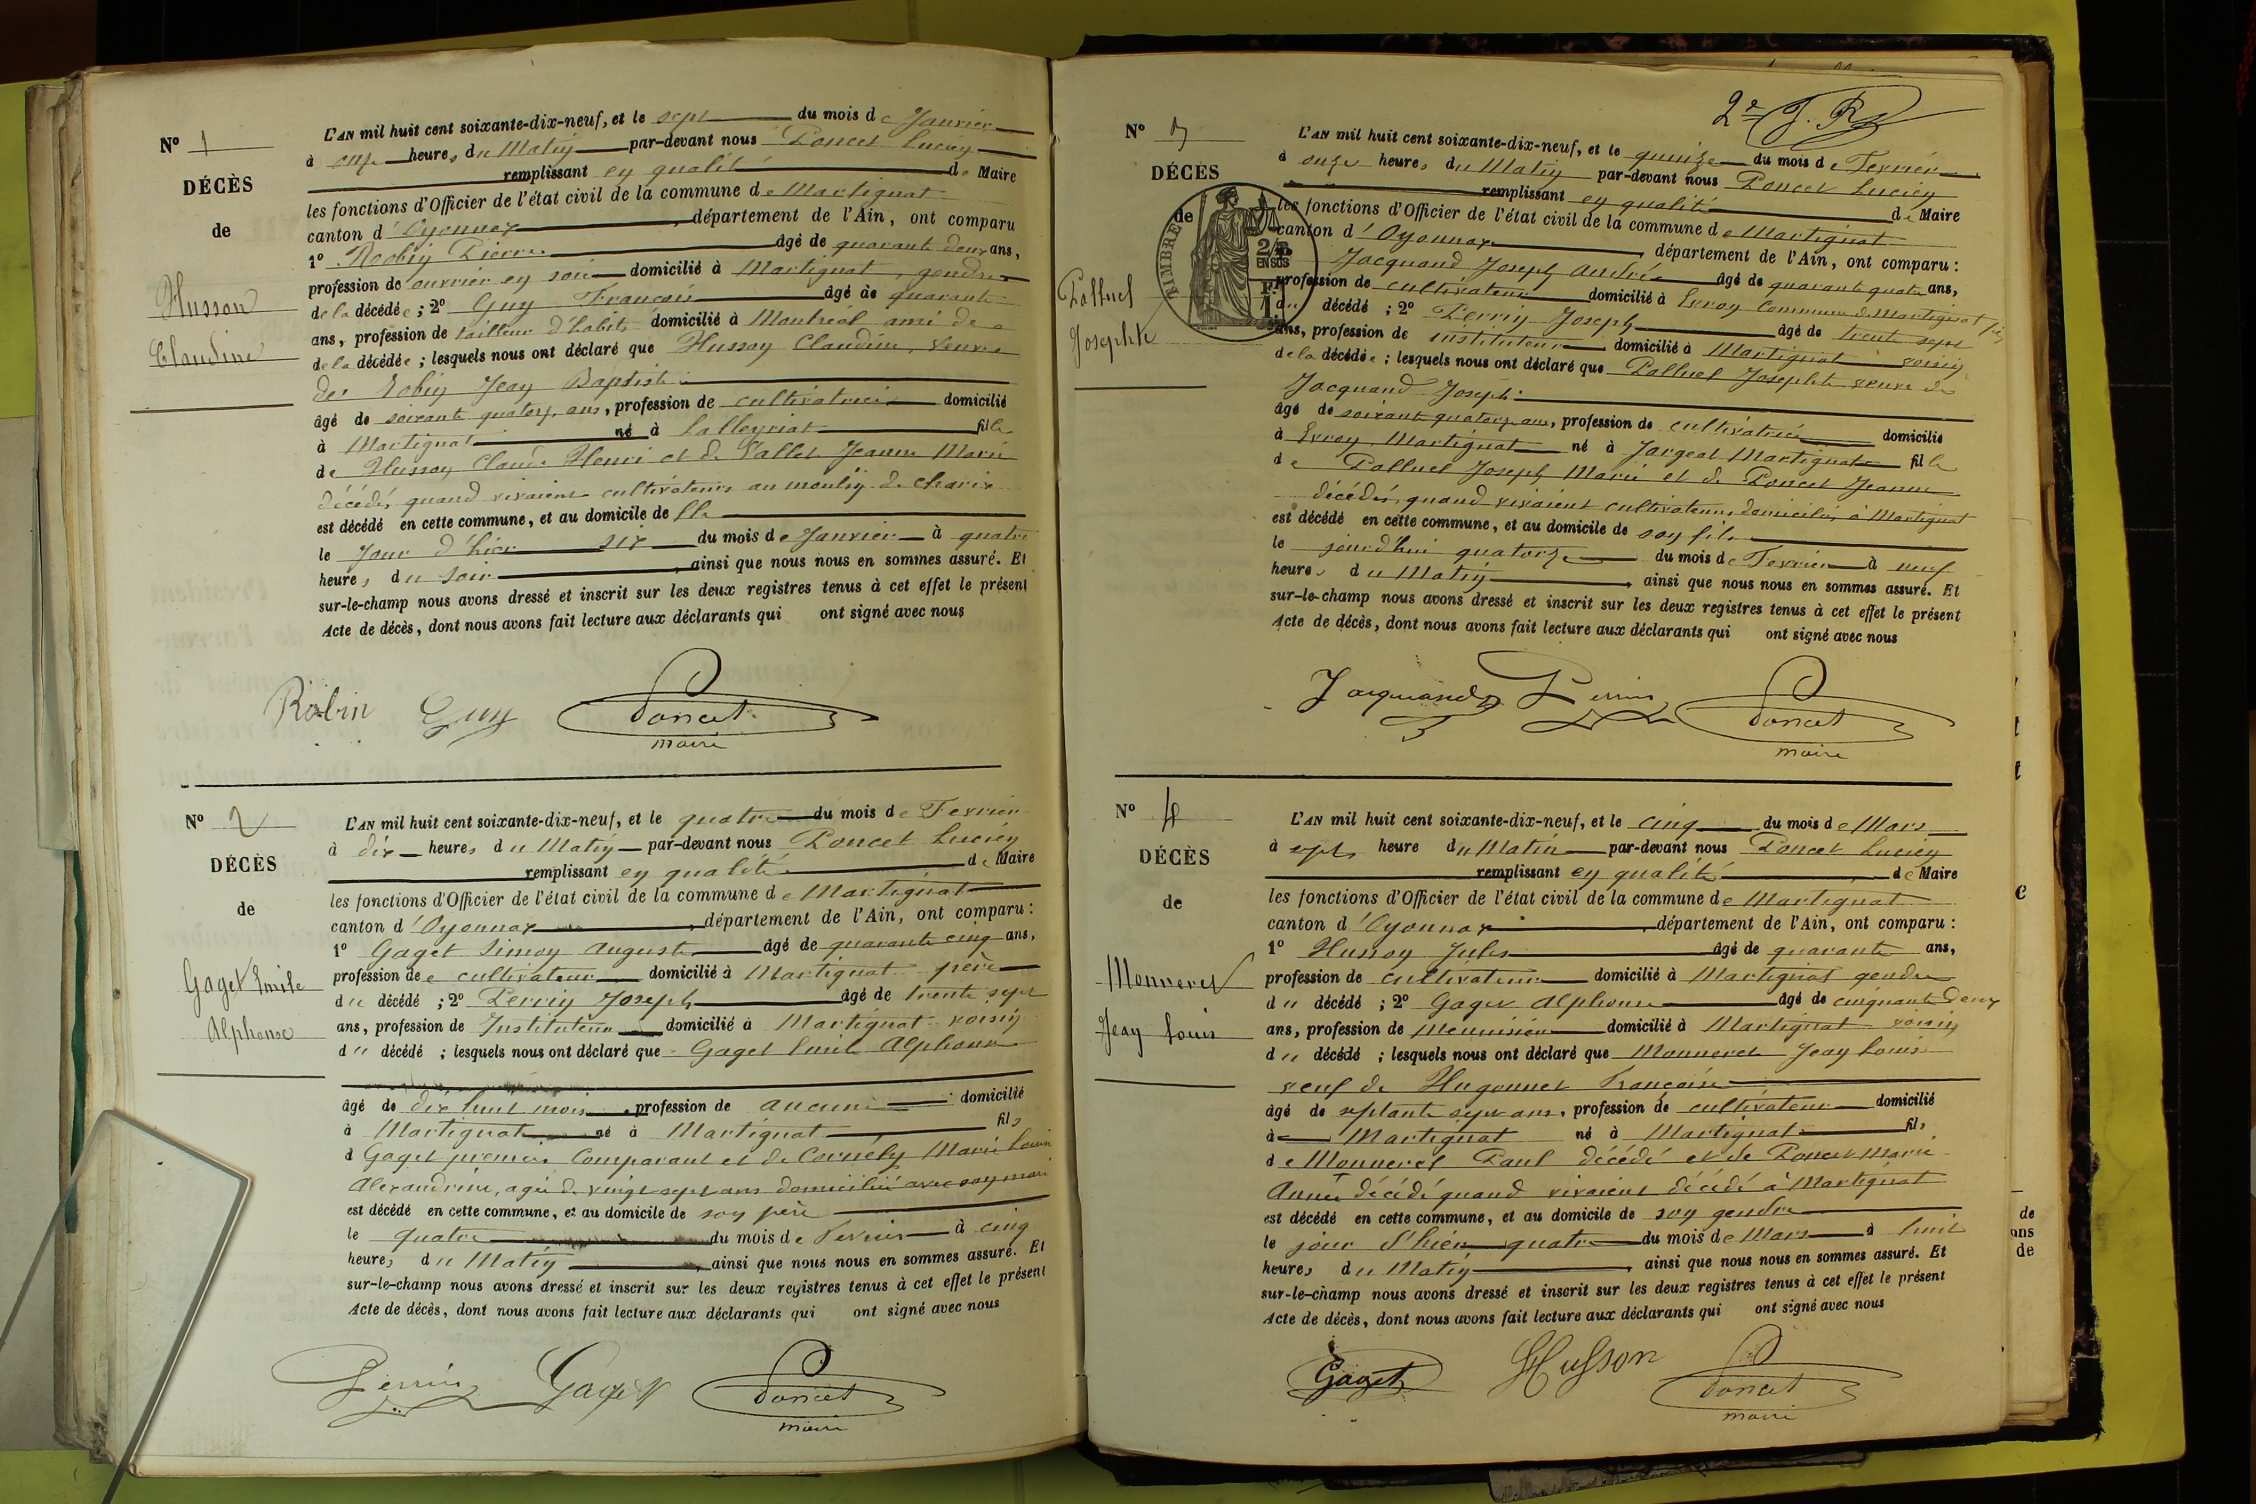 N° 1
DÉCÈS
de
Husson
Claudine
L'AN mil huit cent soixante-dix-neuf, et le sept du mois de Janvier
à onze heures du Matin par-devant nous Poncet Lucien
remplissant en qualité de Maire
les fonctions d'Officier de l'état civil de la commune de Martignat
canton d'Oyonnax, département de l'Ain, ont comparu
1° Robin Pierre âgé de quarante deux ans,
profession de ouvrier en soie domicilié à Martignat, gendre
de la décédée ; 2° Guy François âgé de quarante
ans, profession de tailleur d'habits domicilié à Montreal ami de
de la décédée ; lesquels nous ont déclaré que Husson Claudine, veuve
de Robin Jean Baptiste
âgé de soixante quatorze ans, profession de cultivatrice domicilié
à Martignat né à Lalleyriat fille
de Husson Claude Henri et de Vallet Jeanne Marie
décédés, quand vivaient cultivateurs au moulin de charix
est décédé en cette commune, et au domicile de elle
le jour d'hier six du mois de Janvier à quatre
heures du Soir, ainsi que nous nous en sommes assuré. Et
sur-le-champ nous avons dressé et inscrit sur les deux registres tenus à cet effet le présent
Acte de décès, dont nous avons fait lecture aux déclarants qui ont signé avec nous
Robin Guy Poncet
maire
N° 2
DÉCÈS
de
Gaget Emile
Alphonse
L'AN mil huit cent soixante-dix-neuf, et le quatre du mois de Fevrier
à dix heures du Matin par-devant nous Poncet Lucien
remplissant en qualité de Maire
les fonctions d'Officier de l'état civil de la commune de Martignat
canton d'Oyonnax, département de l'Ain, ont comparu :
1° Gaget Simon Auguste âgé de quarante cinq ans,
profession de cultivateur domicilié à Martignat père
du décédé ; 2° Perrin Joseph âgé de trente sept
ans, profession de Instituteur domicilié à Martignat voisin
du décédé ; lesquels nous ont déclaré que Gaget Emile Alphonse
âgé de dix huit mois, profession de aucune domicilié
à Martignat né à Martignat fils
d Gaget premier Comparant et de Cornély Marie Louise
Alexandrine, agée de vingt sept ans domiciliée avec son mari
est décédé en cette commune, et au domicile de son père
le quatre du mois de Fevrier à cinq
heures du Matin, ainsi que nous nous en sommes assuré. Et
sur-le-champ nous avons dressé et inscrit sur les deux registres tenus à cet effet le présent
Acte de décès, dont nous avons fait lecture aux déclarants qui ont signé avec nous
Perrin Gaget Poncet
maire
2e
N° 3
DÉCÈS
de
Palluel
Josephte
TIMBRE
2/10
EN SUS
L'AN mil huit cent soixante-dix-neuf, et le quinze du mois de Fevrier
à onze heures du Matin par-devant nous Poncet Lucien
remplissant en qualité de Maire
les fonctions d'Officier de l'état civil de la commune de Martignat
canton d'Oyonnax, département de l'Ain, ont comparu :
Jacquand Joseph André âgé de quarante quatre ans,
profession de cultivateur domicilié à Evron Commune de Martignat fils
du décédé ; 2° Perrin Joseph âgé de trente sept
ans, profession de instituteur domicilié à Martignat voisin
de la décédée ; lesquels nous ont déclaré que Palluel Josephte veuve de
Jacquand Joseph
âgé de soixante quatorze ans, profession de cultivatrice domicilié
à Evron, Martignat né à Jargeat Martignat fille
de Palluel Joseph Marie et de Poncet Jeanne
décédés, quand vivaient cultivateurs domiciliés à Martignat
est décédé en cette commune, et au domicile de son fils
le jourd'hui quatorze du mois de Fevrier à neuf
heures du Matin, ainsi que nous nous en sommes assuré. Et
sur-le-champ nous avons dressé et inscrit sur les deux registres tenus à cet effet le présent
Acte de décès, dont nous avons fait lecture aux déclarants qui ont signé avec nous
Jacquand Perrin Poncet
maire
N° 4
DÉCÈS
de
Monneret
Jean Louis
L'AN mil huit cent soixante-dix-neuf, et le cinq du mois de Mars
à sept heure du Matin par-devant nous Poncet Lucien
remplissant en qualité de Maire
les fonctions d'Officier de l'état civil de la commune de Martignat
canton d'Oyonnax, département de l'Ain, ont comparu :
1° Husson Jules âgé de quarante ans,
profession de cultivateur domicilié à Martignat gendre
du décédé ; 2° Gaget Alphonse âgé de cinquante deux
ans, profession de Menuisier domicilié à Martignat voisin
du décédé ; lesquels nous ont déclaré que Monneret Jean Louis
veuf de Hugonnet Françoise
âgé de septante sept ans, profession de cultivateur domicilié
à Martignat né à Martignat fils
de Monneret Paul décédé et de Poncet Marie
Année décédé quand vivaient décédé à Martignat
est décédé en cette commune, et au domicile de son gendre
le jour d'hier quatre du mois de Mars à huit
heures du Matin, ainsi que nous nous en sommes assuré. Et
sur-le-champ nous avons dressé et inscrit sur les deux registres tenus à cet effet le présent
Acte de décès, dont nous avons fait lecture aux déclarants qui ont signé avec nous
Gaget Husson Poncet
maire
de
ons
de